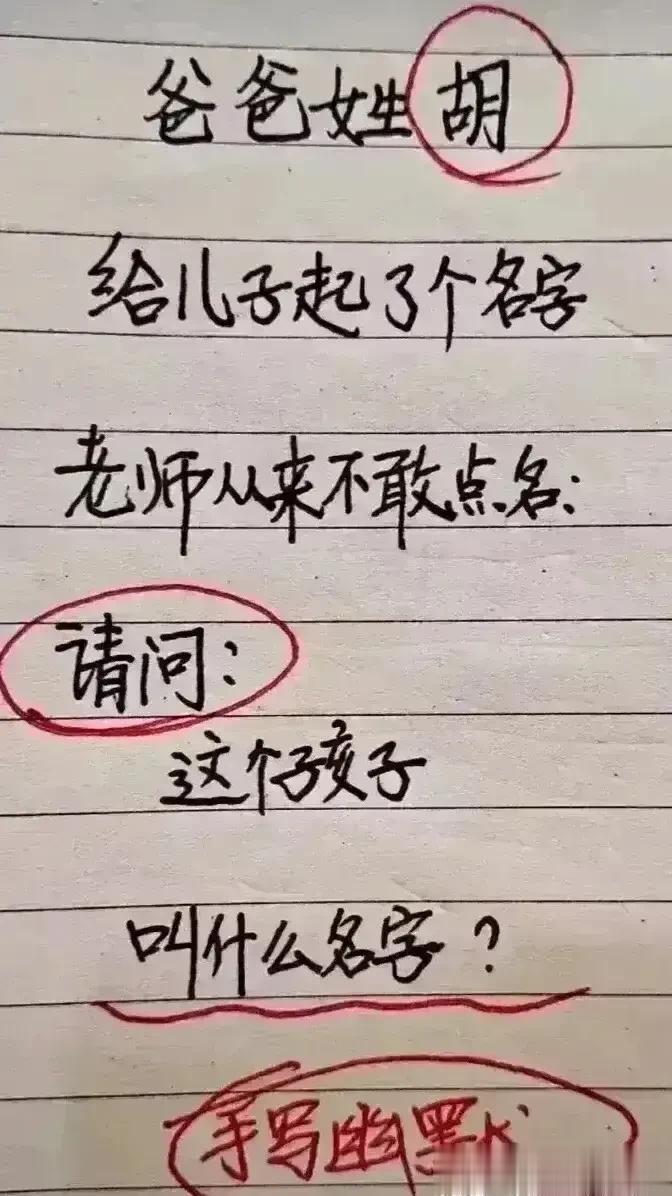 爸爸姓胡
给儿子起了个名字
老师从来不敢点名:
请问:
这个孩子
叫什么名字?
手写幽默